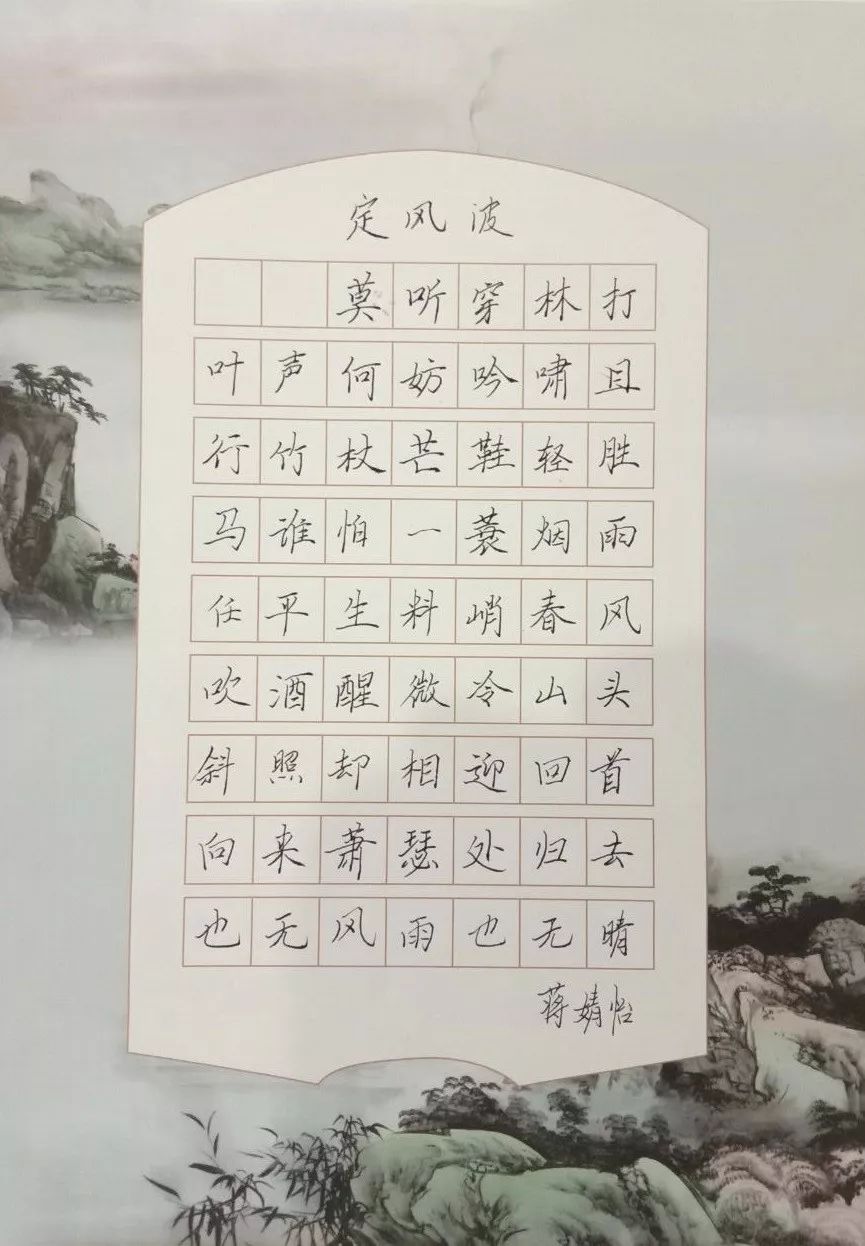 定风波
莫听穿林打
叶声何妨吟啸且
行竹杖芒鞋轻胜
马谁怕一蓑烟雨
任平生料峭春风
吹酒醒微冷山头
斜照却相迎回首
向来萧瑟处归去
也无风雨也无晴
蒋婧怡